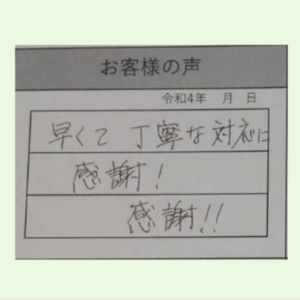 お客様の声
令和4年 月 日
早くて 丁寧な対応に
感謝!
感謝!!